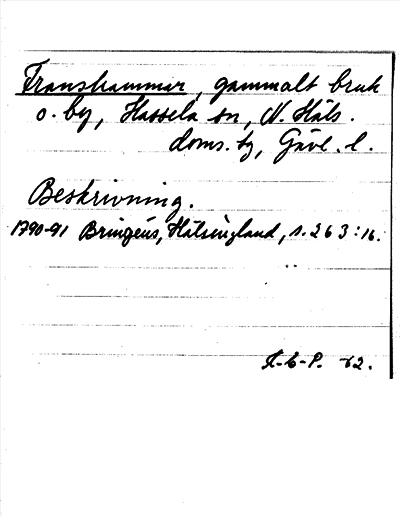 Franshammar, gammalt bruk
o. by, Hassela sn, N. Häls.
doms. by, Gävl. l.
Beskrivning.
1790-91 Bringéus, Hälsingland, s. 263:16.
-62.